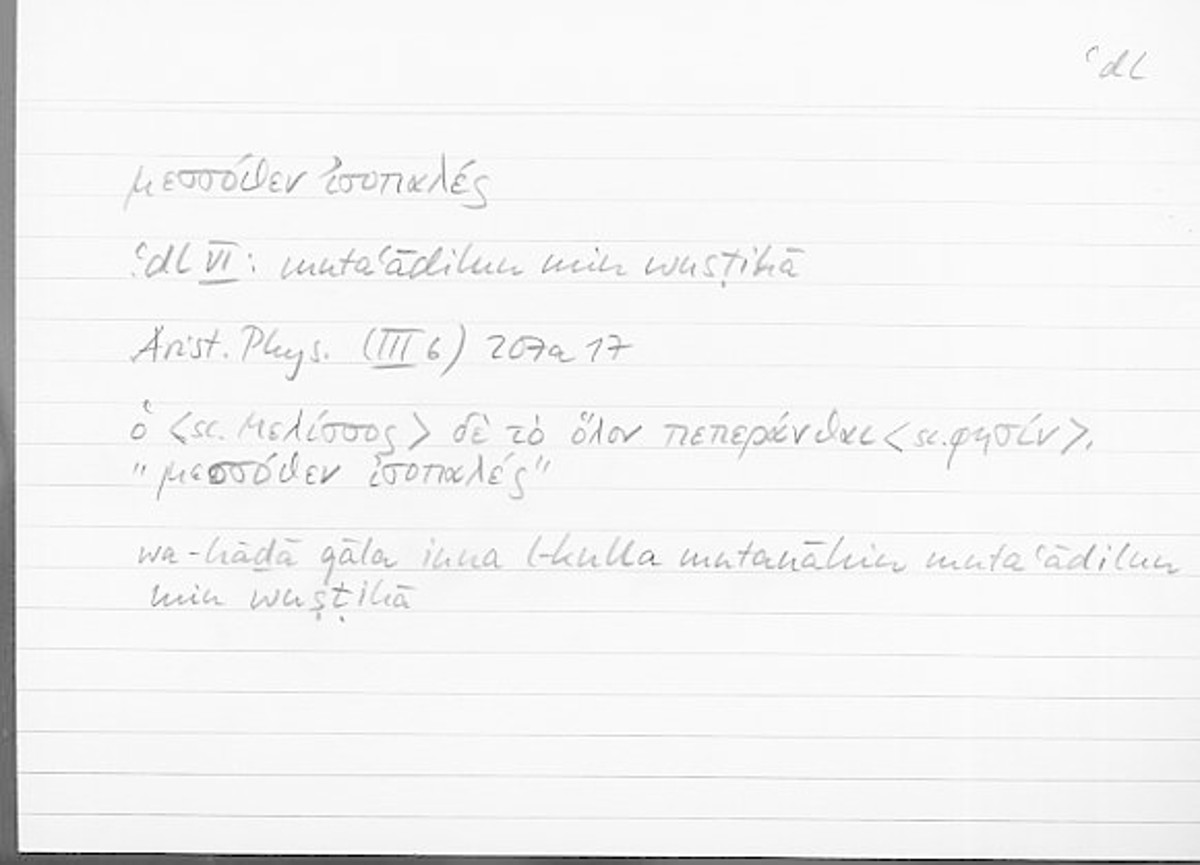 ʿdl
μεσσόθεν ἰσοπαλές
ʿdl VI: mutaʿādilun min wusṭihā
Arist. Phys. (III 6) 207a 17
ὁ <sc. Μελίσσος> δὲ τὸ ὅλον πεπεράνθαι <sc. φησίν>,
"μεσσόθεν ἰσοπαλές"
wa-hāḏā qāla inna l-kulla mutanāhin mutaʿādilun
min wuṣṭihā